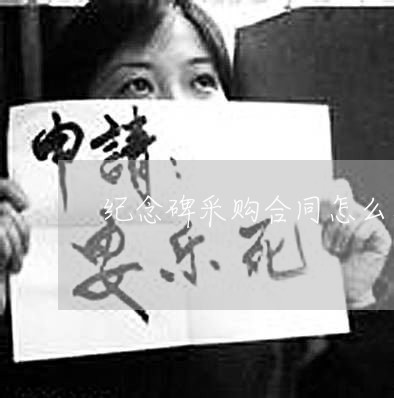 申請：
纪念碑采购合同怎么
安乐死